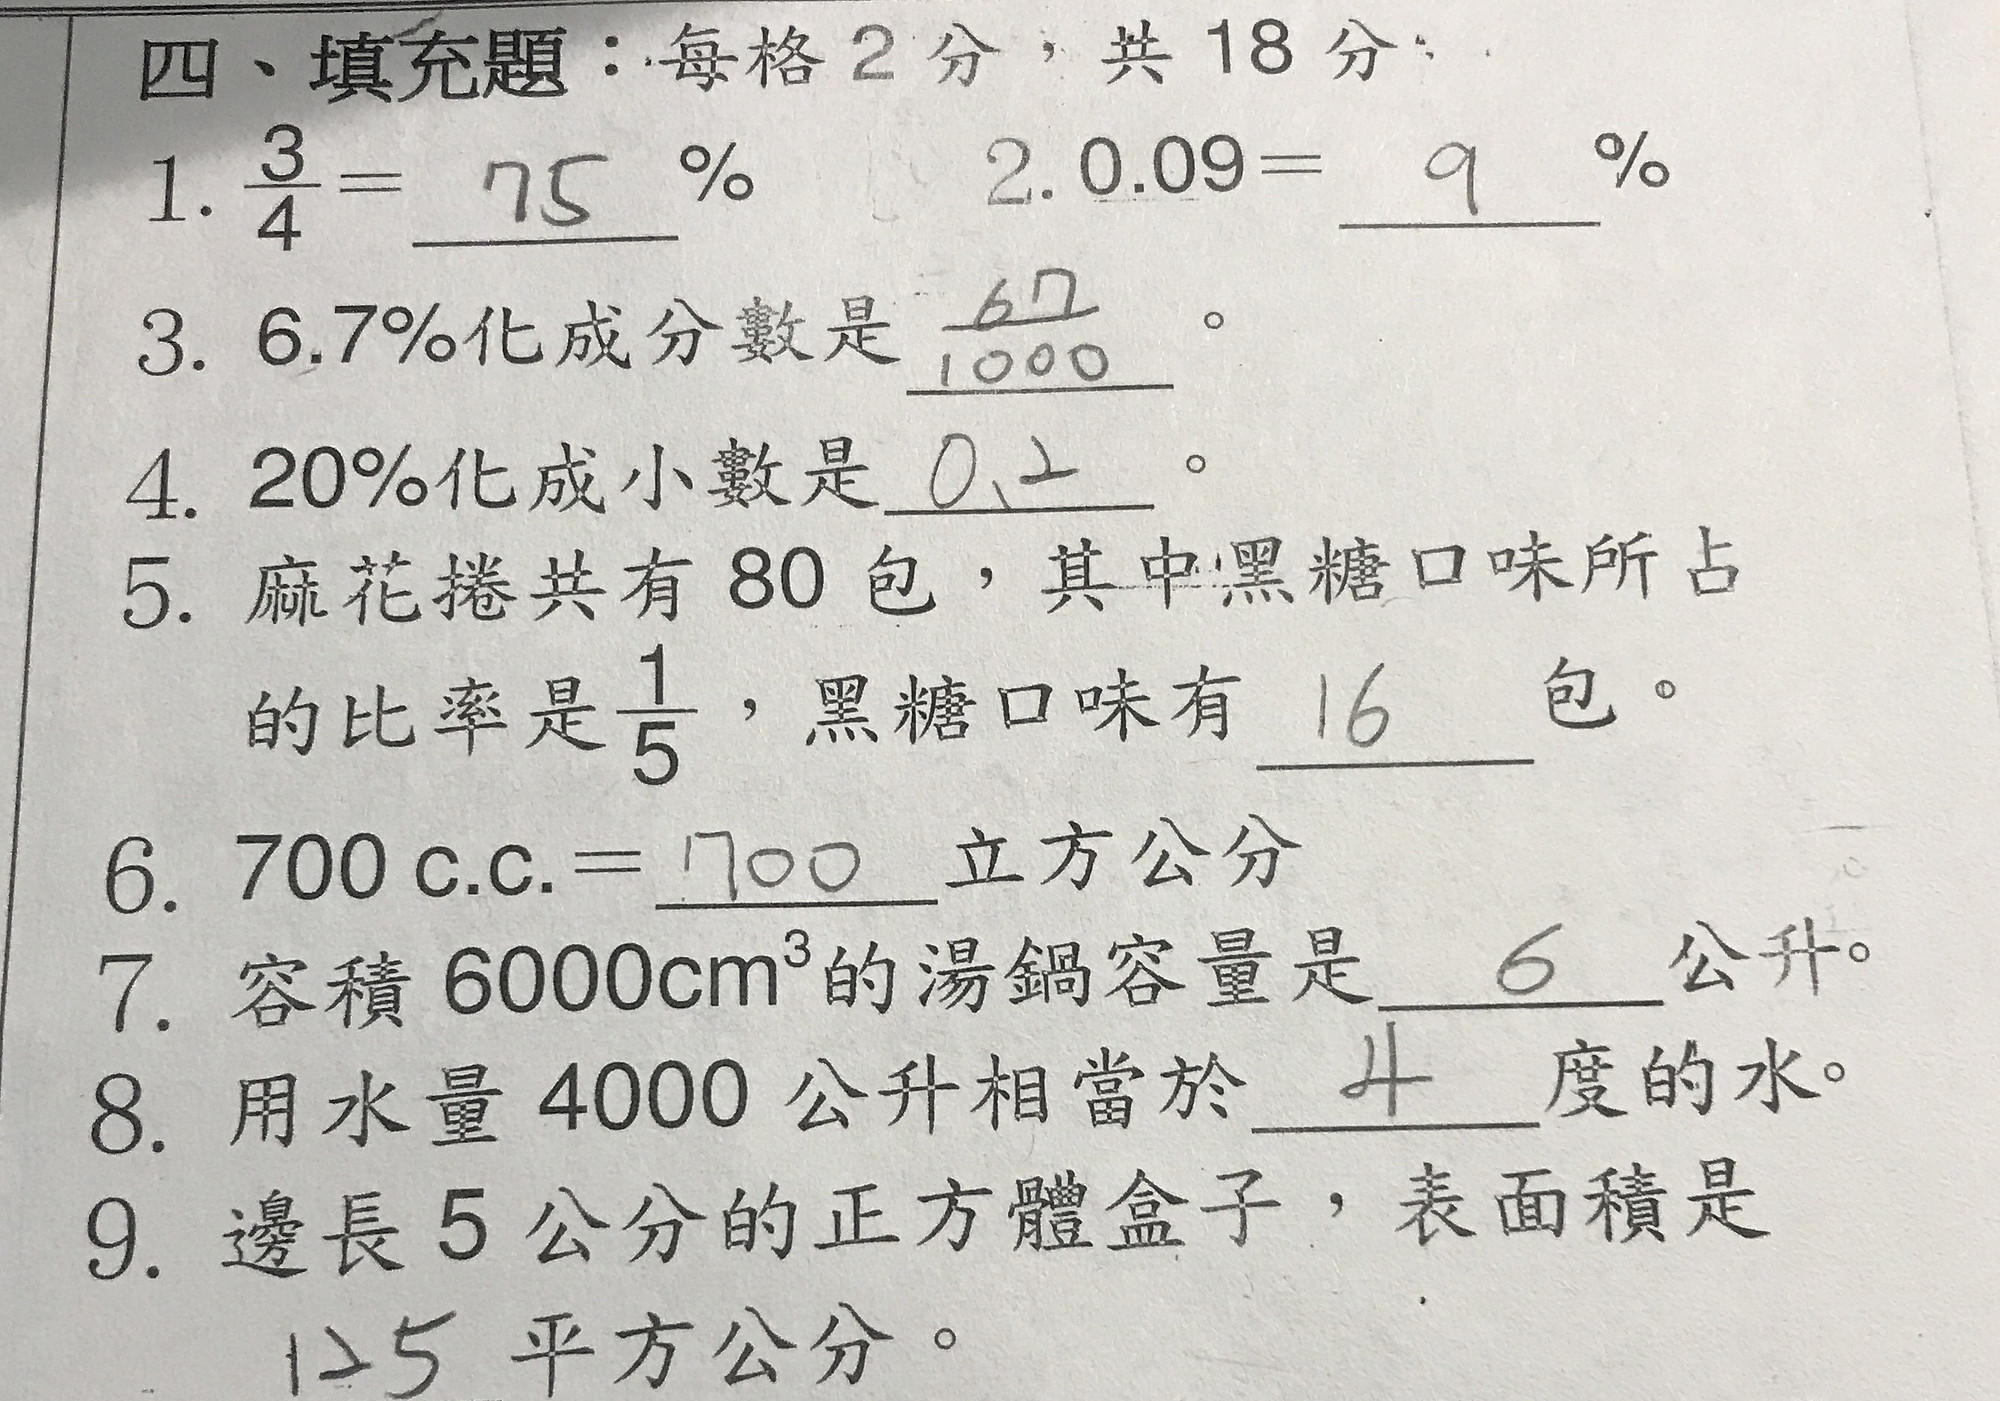 四、填充題：每格 2 分，共 18 分
1. 3/4 = 75 %　2. 0.09 = 9 %
3. 6.7%化成分數是 67/1000 。
4. 20%化成小數是 0.2 。
5. 麻花捲共有 80 包，其中黑糖口味所占
的比率是 1/5 ，黑糖口味有 16 包。
6. 700 c.c. = 700 立方公分
7. 容積 6000cm³的湯鍋容量是 6 公升。
8. 用水量 4000 公升相當於 4 度的水。
9. 邊長 5 公分的正方體盒子，表面積是
125 平方公分。